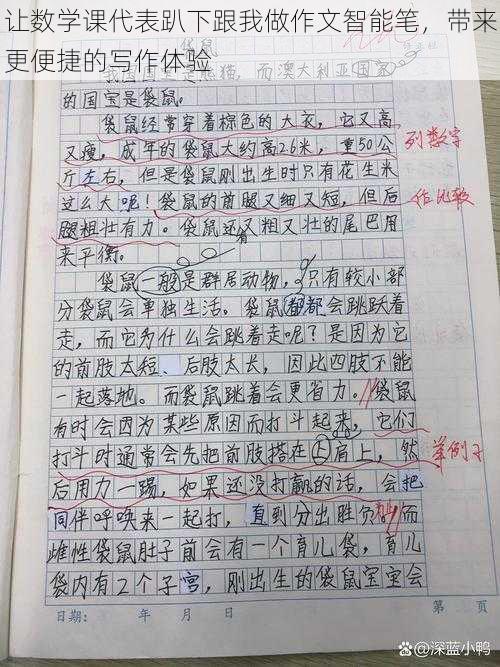 让数学课代表趴下跟我做作文智能笔，带来
更便捷的写作体验
袋鼠
我国国宝是熊猫，而澳大利亚国家
的国宝是袋鼠。
袋鼠经常穿着棕色的大衣，它又高
又瘦，成年的袋鼠大约高2.6米，重50公
列数字
斤左右，但是袋鼠刚出生时只有花生米
这么大呢！袋鼠的前腿又细又短，但后
作比较
腿粗壮有力。袋鼠还有又粗又壮的尾巴用
来平衡。
袋鼠一般是群居动物，只有较小部
分袋鼠会单独生活。袋鼠都都会跳跃着
走，而它为什么会跳着走呢？是因为它
的前肢太短、后肢太长，因此四肢不能
一起落地。而袋鼠跳着会更省力。袋鼠
有时会因为某些原因而打斗起来，它们
打斗时通常会先把前肢搭在上肩上，然
举例子
后用力一踢，如果还没打赢的话，会把
同伴呼唤来一起打，直到分出胜负。而
雌性袋鼠肚子前会有一个育儿袋，育儿
袋内有2个子宫，刚出生的袋鼠宝宝会
日期： 年 月 日 第 页
@深蓝小鸭